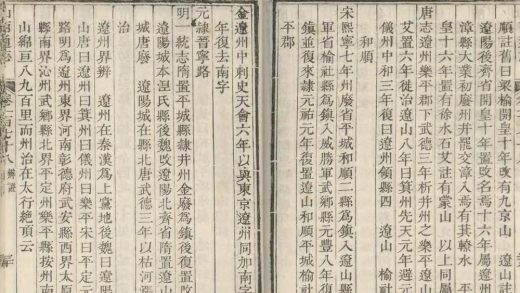 順註舊曰梁榆開皇十年改 遼山註
遼陽後齊省開皇十年置改名焉十六年屬遼
漳縣大業初廢州并罷交漳入焉有箕轑水 平
皇十六年有徐水石艾註有蒙山 以上同屬
唐志遼州樂平郡下武德三年析并州之樂平遼山
艾置六年徙治遼山八年曰箕州先天元年避元
儀州中和三年復曰遼州領縣四 遼山 榆社
和順
宋熙寧七年州廢省平城和順二縣爲鎮入遼山縣
軍省榆社縣爲鎮入威勝軍武鄉縣元豐八年復
鎮並復來隸元祐元年復置遼山和順平城榆社
平郡
金遼州中刺史天會六年以與東京遼州同加南字
年復去南字
元隸晉寧路
明一統志隋置平城縣隸并州金廢爲鎮後復置改
遼陽城本涅氏縣後魏改遼陽北齊省隋置遼山
城唐廢 遼陽城在縣北唐武德三年以枯河漲
治
遼州界辨 遼州在秦漢爲上黨地後魏曰遼
山唐曰遼州曰箕州曰儀州曰樂平宋曰平定元
路明爲遼州東界河南彰德府武安縣西界太原
縣南界沁州武鄉縣北界平定州樂平縣按州南
山綿亘八九百里而州治在太行絕頂云